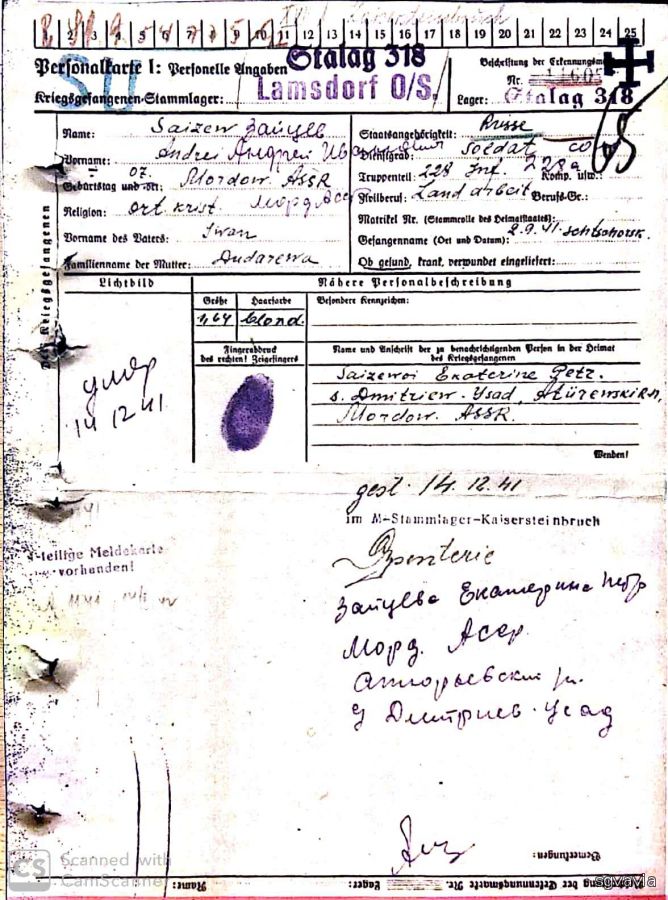 2 3 4 5 6 7 8 9 10 11 12 13 14 15 16 17 18 19 20 21 22 23 24 25
SU
Personalkarte I: Personelle Angaben
Kriegsgefangenen-Stammlager:
Stalag 318
Lamsdorf O/S.
Beschriftung der Erkennungsmarke
Nr.
Lager: Stalag 318
Des Kriegsgefangenen
Name: Saizew Зайцев
Vorname: Andrei Андрей
Geburtstag und -ort: 07. Mordow. ASSR
Religion: ort krist. Морд Асср
Vorname des Vaters: Iwan
Familienname der Mutter: Audarewa
Staatsangehörigkeit: Russe
Dienstgrad: Soldat
Truppenteil: 228 Inf. Komp. usw.:
Zivilberuf: Landarbeit Berufs-Gr.:
Matrikel Nr. (Stammrolle des Heimatstaates):
Gefangennahme (Ort und Datum): 2.9.41.
Ob gesund, krank, verwundet eingeliefert:
Lichtbild
Nähere Personalbeschreibung
Größe
Haarfarbe
Besondere Kennzeichen:
1,64
blond.
Fingerabdruck
des rechten! Zeigefingers
Name und Anschrift der zu benachrichtigenden Person in der Heimat
des Kriegsgefangenen
Saizewoi Ekaterine Petr.
s. Dmitriew-Ysad,
Mordow. ASSR.
Wenden!
умер
14 12 41
gest. 14. 12. 41
im M-Stammlager-Kaisersteinbruch
-teilige Meldekarte
vorhanden!
Зайцева Екатерина Петр
Морд. Асср.
Атюрьевский р.
Дмитриев-Усад
Bemerkungen:
Name:
Lager:
Beschriftung der Erkennungsmarke Nr.
CS
Scanned with
CamScanner
sgvavia